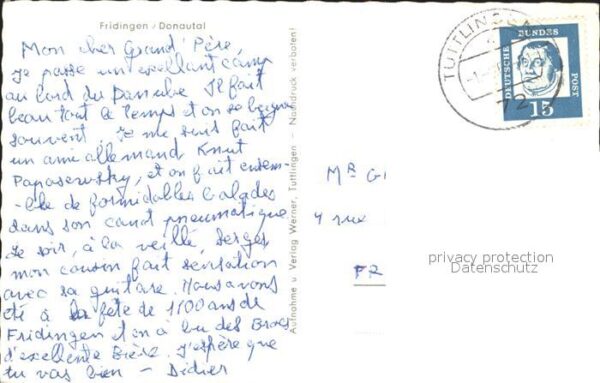 Fridingen / Donautal
Mon cher Grand'Père,
Je passe un exellant camp
au bord du Danube Il fait
beau tout le temps et on se baigne
souvent. Je me suis fait
un ami allemand Knut
et on fait ensem-
ble de formidables balades
dans son canot pneumatique
Le soir, à la veillé, Serges
mon cousin fait sensation
avec sa guitare. Nous avons
été à la fête de 1100 ans de
Fridingen et on a bu des Brocs
d'excellente Bière. J'espère que
tu vas bien - Didier
Aufnahme u. Verlag Werner, Tuttlingen - Nachdruck verboten!
TUTTLINGEN
72
DEUTSCHE BUNDES POST
15
MR G
4 rue
FR
privacy protection
Datenschutz